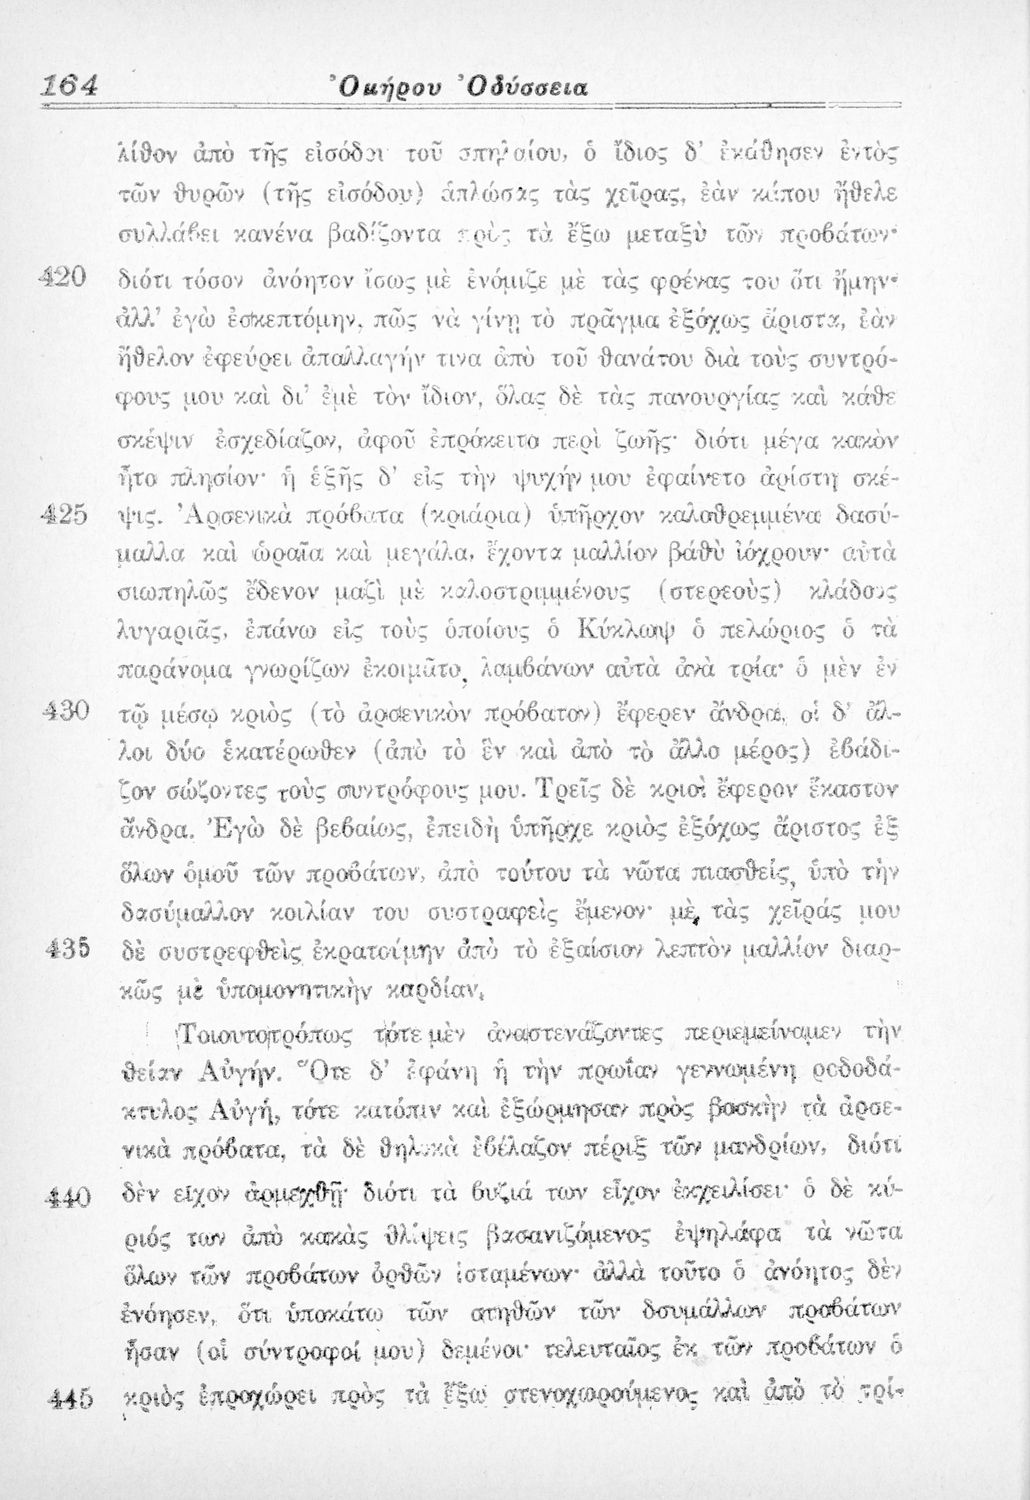 164 Ὁμήρου Ὀδύσσεια
λίθον ἀπὸ τῆς εἰσόδου τοῦ σπηλαίου, ὁ ἴδιος δ’ ἐκάθησεν ἐντὸς
τῶν θυρῶν (τῆς εἰσόδου) ἁπλώσας τὰς χεῖρας, ἐὰν κάπου ἤθελε
συλλάβει κανένα βαδίζοντα πρὸς τὰ ἔξω μεταξὺ τῶν προβάτων·
420 διότι τόσον ἀνόητον ἴσως μὲ ἐνόμιζε μὲ τὰς φρένας του ὅτι ἤμην·
ἀλλ’ ἐγὼ ἐσκεπτόμην, πῶς νὰ γίνῃ τὸ πρᾶγμα ἐξόχως ἄριστα, ἐὰν
ἤθελον ἐφεύρει ἀπαλλαγήν τινα ἀπὸ τοῦ θανάτου διὰ τοὺς συντρό-
φους μου καὶ δι’ ἐμὲ τὸν ἴδιον, ὅλας δὲ τὰς πανουργίας καὶ κάθε
σκέψιν ἐσχεδίαζον, ἀφοῦ ἐπρόκειτο περὶ ζωῆς· διότι μέγα κακὸν
ἦτο πλησίον· ἡ ἑξῆς δ’ εἰς τὴν ψυχήν μου ἐφαίνετο ἀρίστη σκέ-
425 ψις. Ἀρσενικὰ πρόβατα (κριάρια) ὑπῆρχον καλοθρεμμένα δασύ-
μαλλα καὶ ὡραῖα καὶ μεγάλα, ἔχοντα μαλλίον βάθὺ ἰόχρουν· αὐτὰ
σιωπηλῶς ἔδενον μαζὶ μὲ καλοστριμμένους (στερεοὺς) κλάδους
λυγαριᾶς, ἐπάνω εἰς τοὺς ὁποίους ὁ Κύκλωψ ὁ πελώριος ὁ τὰ
παράνομα γνωρίζων ἐκοιμᾶτο, λαμβάνων αὐτὰ ἀνὰ τρία· ὁ μὲν ἐν
430 τῷ μέσῳ κριὸς (τὸ ἀρσενικὸν πρόβατον) ἔφερεν ἄνδρα, οἱ δ’ ἄλ-
λοι δύο ἑκατέρωθεν (ἀπὸ τὸ ἓν καὶ ἀπὸ τὸ ἄλλο μέρος) ἐβάδι-
ζον σώζοντες τοὺς συντρόφους μου. Τρεῖς δὲ κριοὶ ἔφερον ἕκαστον
ἄνδρα. Ἐγὼ δὲ βεβαίως, ἐπειδὴ ὑπῆρχε κριὸς ἐξόχως ἄριστος ἐξ
ὅλων ὁμοῦ τῶν προβάτων, ἀπὸ τούτου τὰ νῶτα πιασθείς, ὑπὸ τὴν
δασύμαλλον κοιλίαν του συστραφεὶς ἔμενον· μὲ τὰς χεῖράς μου
435 δὲ συστρεφθεὶς ἐκρατούμην ἀπὸ τὸ ἐξαίσιον λεπτὸν μαλλίον διαρ-
κῶς μὲ ὑπομονητικὴν καρδίαν.
Τοιουτοτρόπως τότε μὲν ἀναστενάζοντες περιεμείναμεν τὴν
θείαν Αὐγήν. Ὅτε δ’ ἐφάνη ἡ τὴν πρωΐαν γεννωμένη ροδοδά-
κτυλος Αὐγή, τότε κατόπιν καὶ ἐξώρμησαν πρὸς βοσκὴν τὰ ἀρσε-
νικὰ πρόβατα, τὰ δὲ θηλυκὰ ἐβέλαζον πέριξ τῶν μανδρίων, διότι
440 δὲν εἶχον ἀρμεχθῆ· διότι τὰ βυζιά των εἶχον ἐκχειλίσει· ὁ δὲ κύ-
ριός των ἀπὸ κακὰς θλίψεις βασανιζόμενος ἐψηλάφα τὰ νῶτα
ὅλων τῶν προβάτων ὀρθῶν ἱσταμένων· ἀλλὰ τοῦτο ὁ ἀνόητος δὲν
ἐνόησεν, ὅτι ὑποκάτω τῶν στηθῶν τῶν δσυμάλλων προβάτων
ἦσαν (οἱ σύντροφοί μου) δεμένοι· τελευταῖος ἐκ τῶν προβάτων ὁ
445 κριὸς ἐπροχώρει πρὸς τὰ ἔξω στενοχωρούμενος καὶ ἀπὸ τὸ τρί-